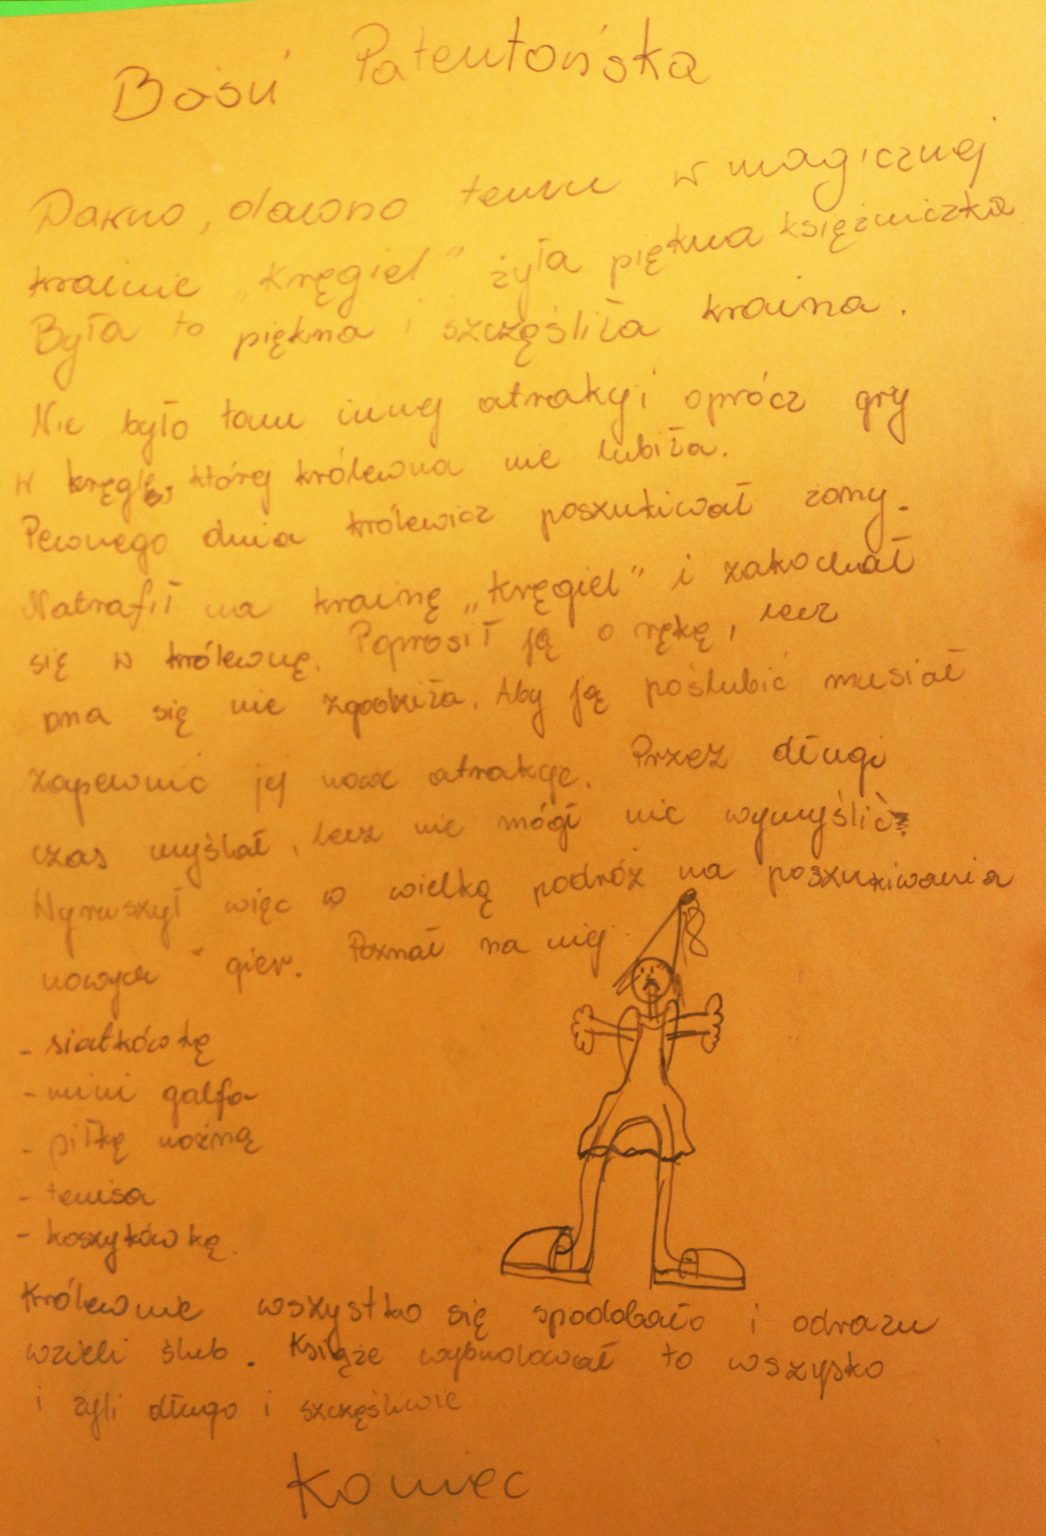 Baśń Patentońska
Dawno, dawno temu w magicznej
krainie "Kręgiel" żyła piękna księżniczka
Była to piękna i szczęśliła kraina.
Nie było tam innej atrakcji oprócz gry
w kręgle, której królewna nie lubiła.
Pewnego dnia królewicz poszukiwał żony.
Natrafił na krainę „Kręgiel" i zakochał
się w królewnę. Poprosił ją o rękę, lecz
ona się nie zgodziła. Aby ją poślubić musiał
zapewnić jej nowe atrakcje. Przez długi
czas myślał, lecz nic mógł nic wymyślić.
Wyruszył więc w wielką podróż na poszukiwania
nowych gier. Poznał na niej
- siatkówkę
- mini galfa
- piłkę nożną
- tenisa
- koszykówkę.
Królewnie wszystko się spodobało i odrazu
wzieli ślub. Książe wybudował to wszysko
i żyli długo i szczęśliwie
Koniec